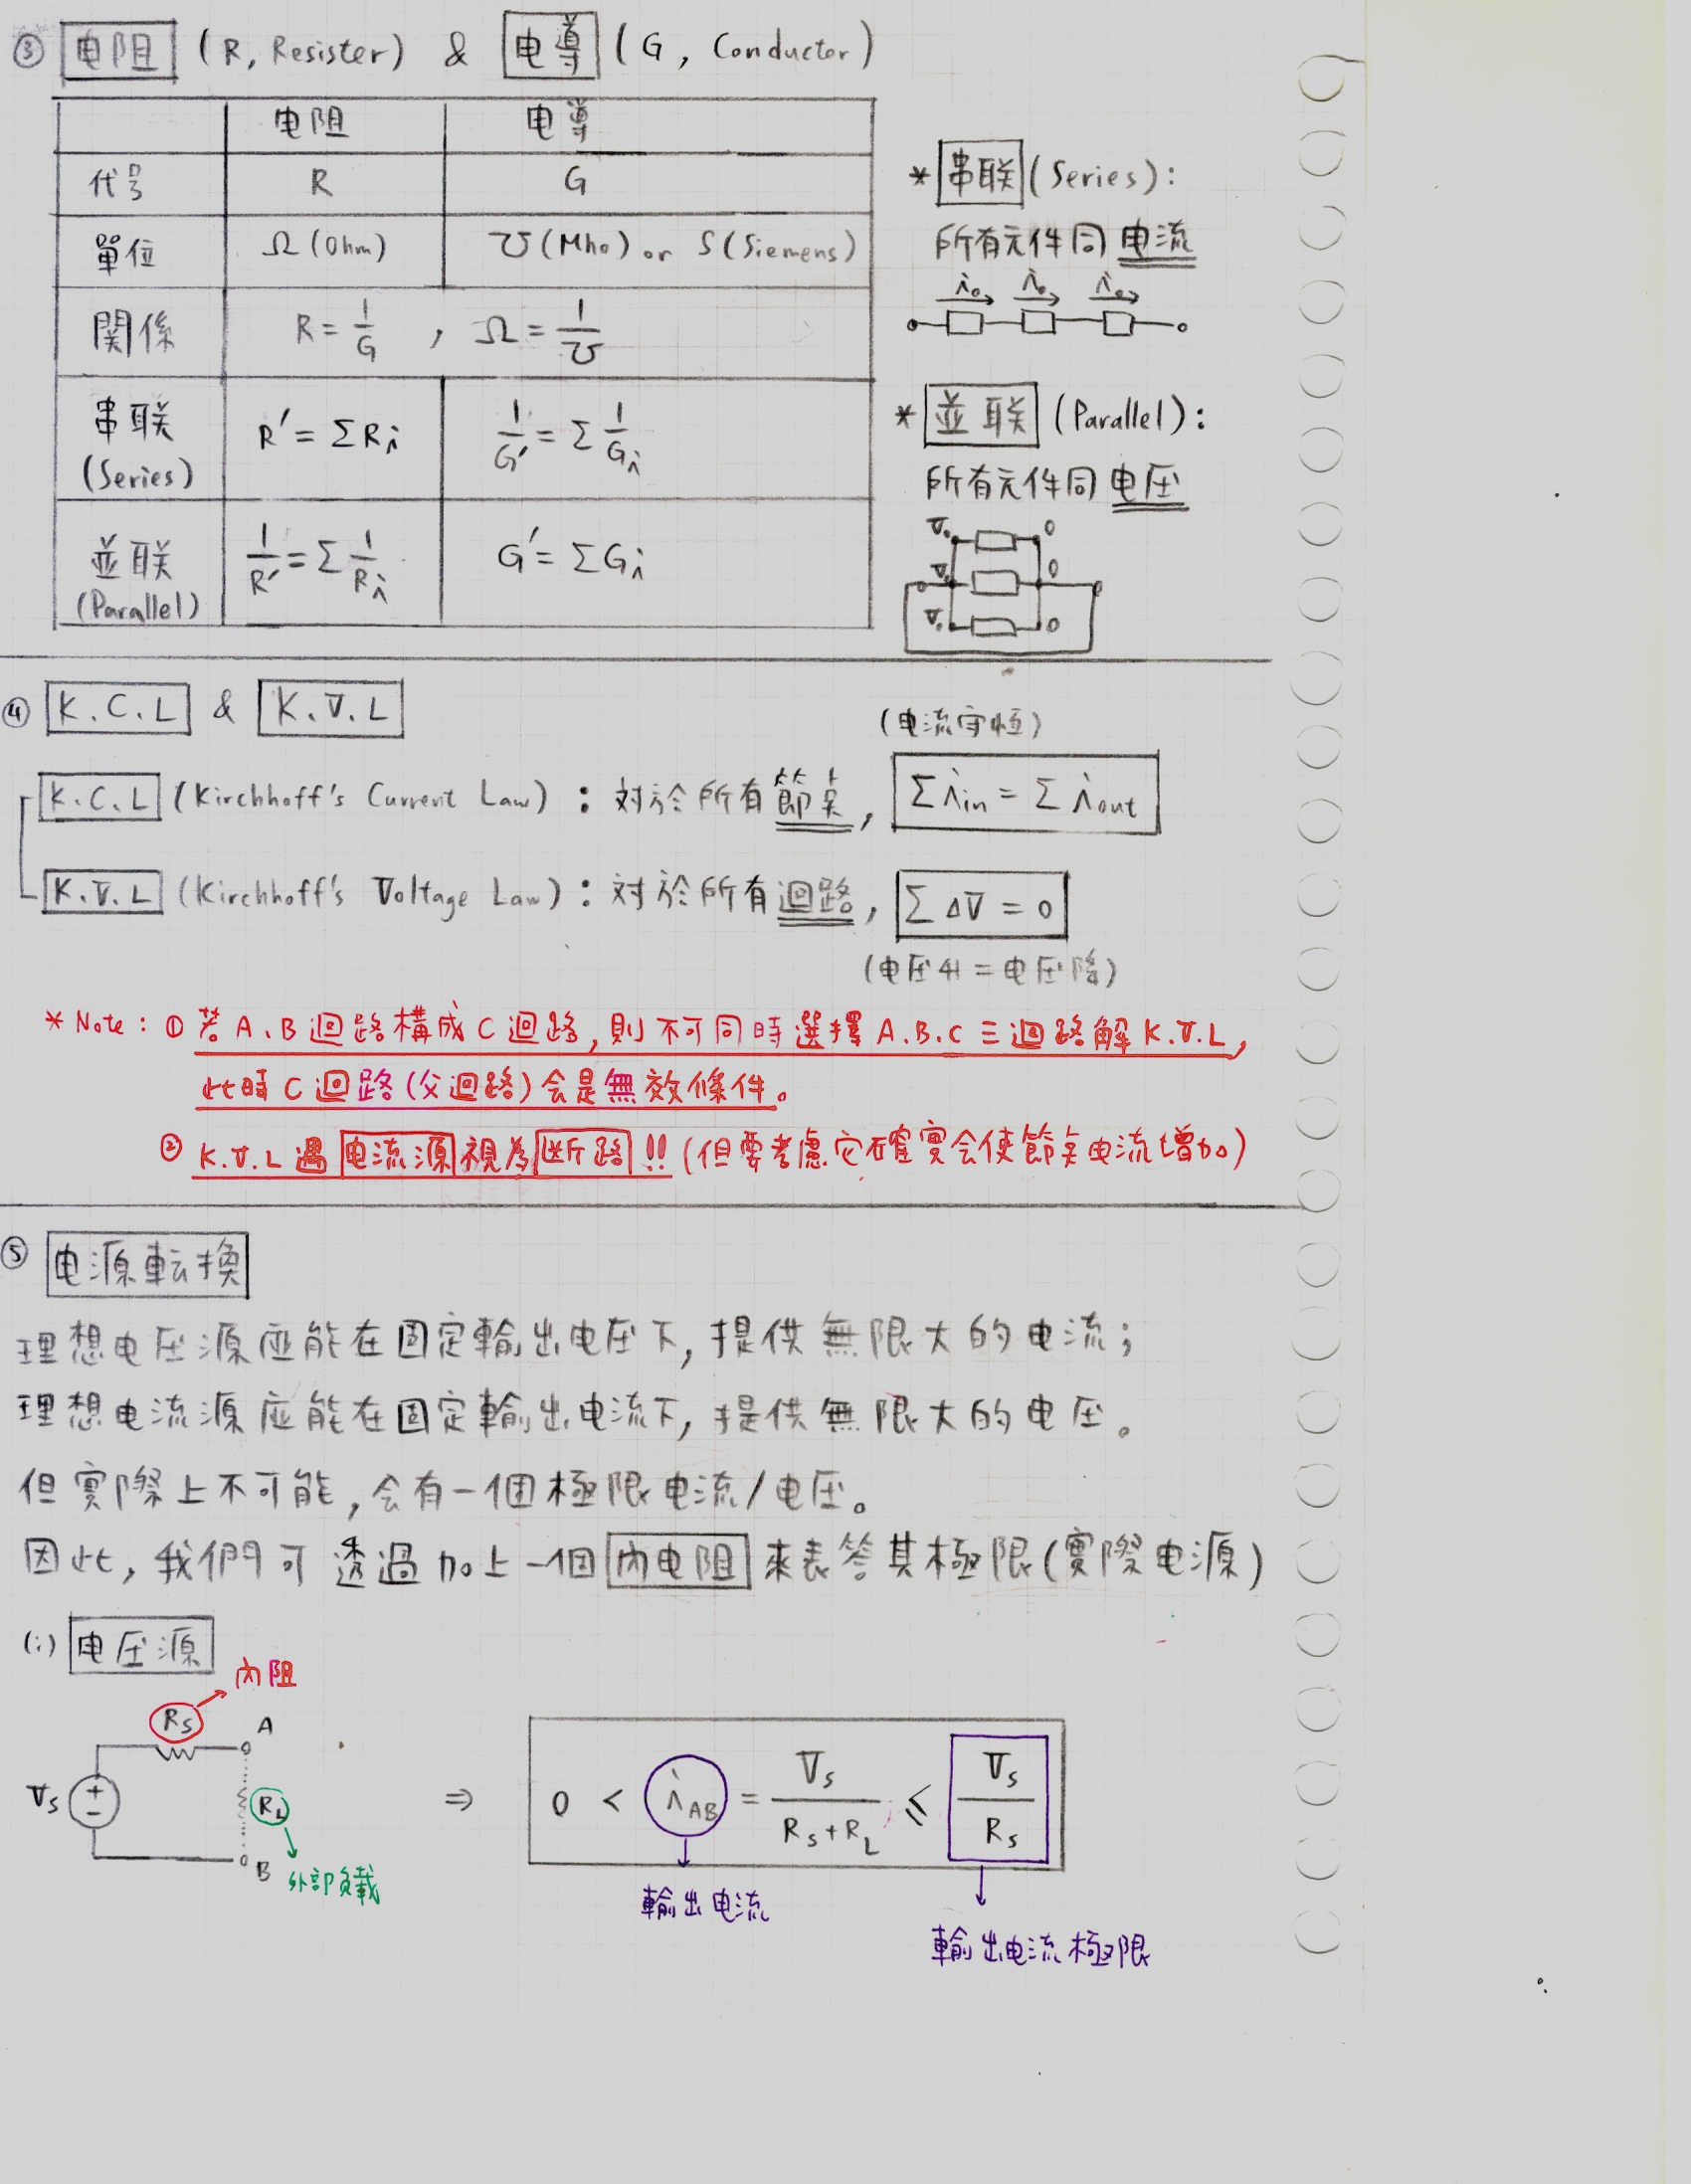 ③ 电阻 (R, Resister) & 电導 (G, Conductor)
电阻 电導
代号 R G
單位 Ω(Ohm) ℧(Mho) or S(Siemens)
関係 R = 1/G , Ω = 1/℧
串联 (Series) R' = ΣRi 1/G' = Σ 1/Gi
並联 (Parallel) 1/R' = Σ 1/Ri G' = ΣGi
* 串联 (Series):
所有元件同电流
i₀ i₀ i₀
* 並联 (Parallel):
所有元件同电压
V₀ 0
V₀ 0
V₀ 0
④ K.C.L & K.V.L
(电流守恒)
K.C.L (Kirchhoff's Current Law) : 対於所有節点, Σ i in = Σ i out
K.V.L (Kirchhoff's Voltage Law) : 対於所有迴路, Σ ΔV = 0
(电压升 = 电压降)
* Note : ① 若 A、B 迴路構成 C 迴路, 則不可同時選擇 A.B.C 三迴路解 K.V.L,
此時 C 迴路(父迴路)会是無效條件。
② K.V.L 遇电流源視為断路!! (但要考慮它確實会使節点电流增加)
⑤ 电源転換
理想电压源应能在固定輸出电压下, 提供無限大的电流;
理想电流源应能在固定輸出电流下, 提供無限大的电压。
但實際上不可能, 会有一個極限电流/电压。
因此, 我們可透過加上一個內电阻來表答其極限(實際电源)
(i) 电压源
內阻
Rs A
Vs + − RL
B 外部负載
⇒ 0 < i AB = Vs/(Rs+RL) ≤ Vs/Rs
輸出电流
輸出电流極限